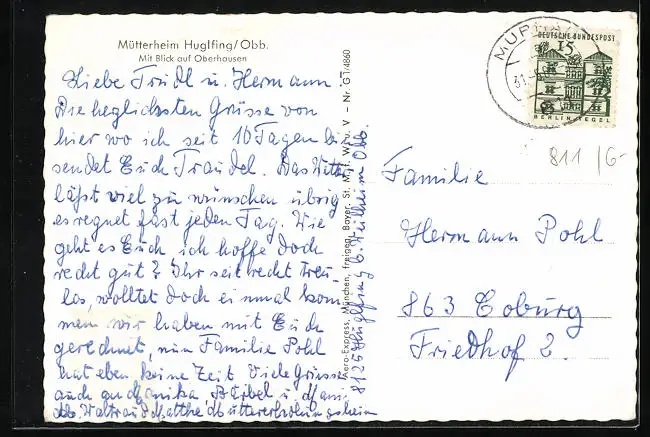 Mütterheim Huglfing/Obb.
Mit Blick auf Oberhausen
Liebe Friedl u. Hermann.
Die herzlichsten Grüsse von
hier wo ich seit 10 Tagen bin
sendet Euch Traudel. Das Wetter
läßt viel zu wünschen übrig
es regnet fast jeden Tag. Wie
geht es Euch ich hoffe doch
recht gut? Ihr seit recht treu
los, wolltet doch einmal kom
men wir haben mit Euch
gerechnet, nun Familie Pohl
hat eben keine Zeit. Viele Grüsse
auch an Monika, Bärbel u.
Waltraud Müttererholungsheim
8125 Huglfing b. Weilheim Obb.
Aero-Express, München, freigeg. Bayer. St. M. f. W. u. V - Nr. G 1/4860
MURNAU
DEUTSCHE BUNDESPOST
15
BERLIN-TEGEL
811 /6-
Familie
Hermann Pohl
863 Coburg
Friedhof 2.